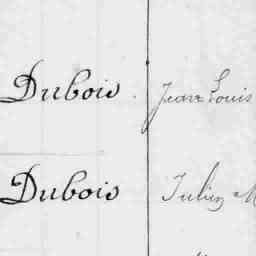 Dubois Jean Louis
Dubois Julien M